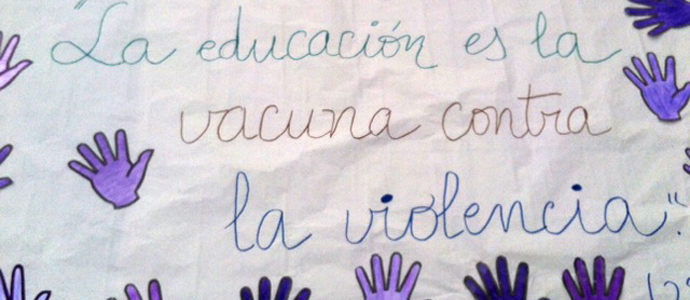 "La educación es la
vacuna contra
la violencia".